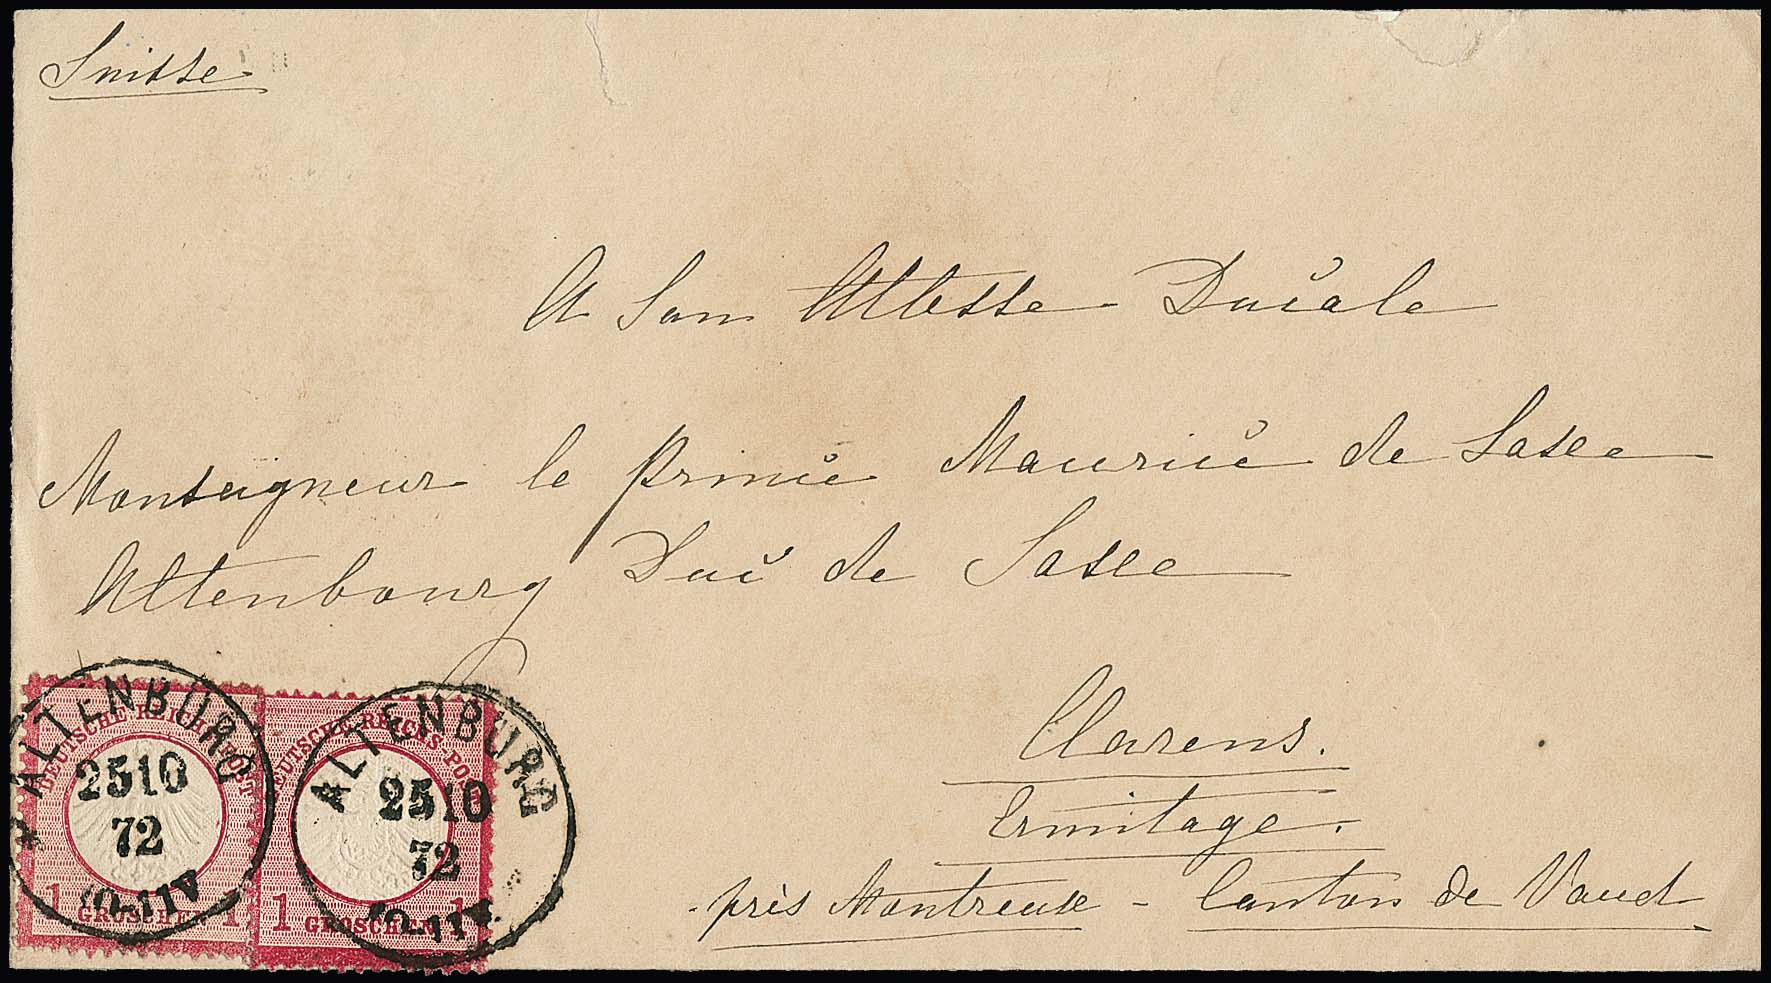 Suisse
A Son Altesse Ducale
Monseigneur le Prince Maurice de Saxe
Altenbourg Duc de Saxe
Clarens.
Ermitage.
près Montreux - Canton de Vaud
ALTENBURG
25 10
72
10-11 V
*
DEUTSCHE REICHS-POST
1 GROSCHEN 1
ALTENBURG
25 10
72
10-11 V
DEUTSCHE REICHS-POST
1 GROSCHEN 1